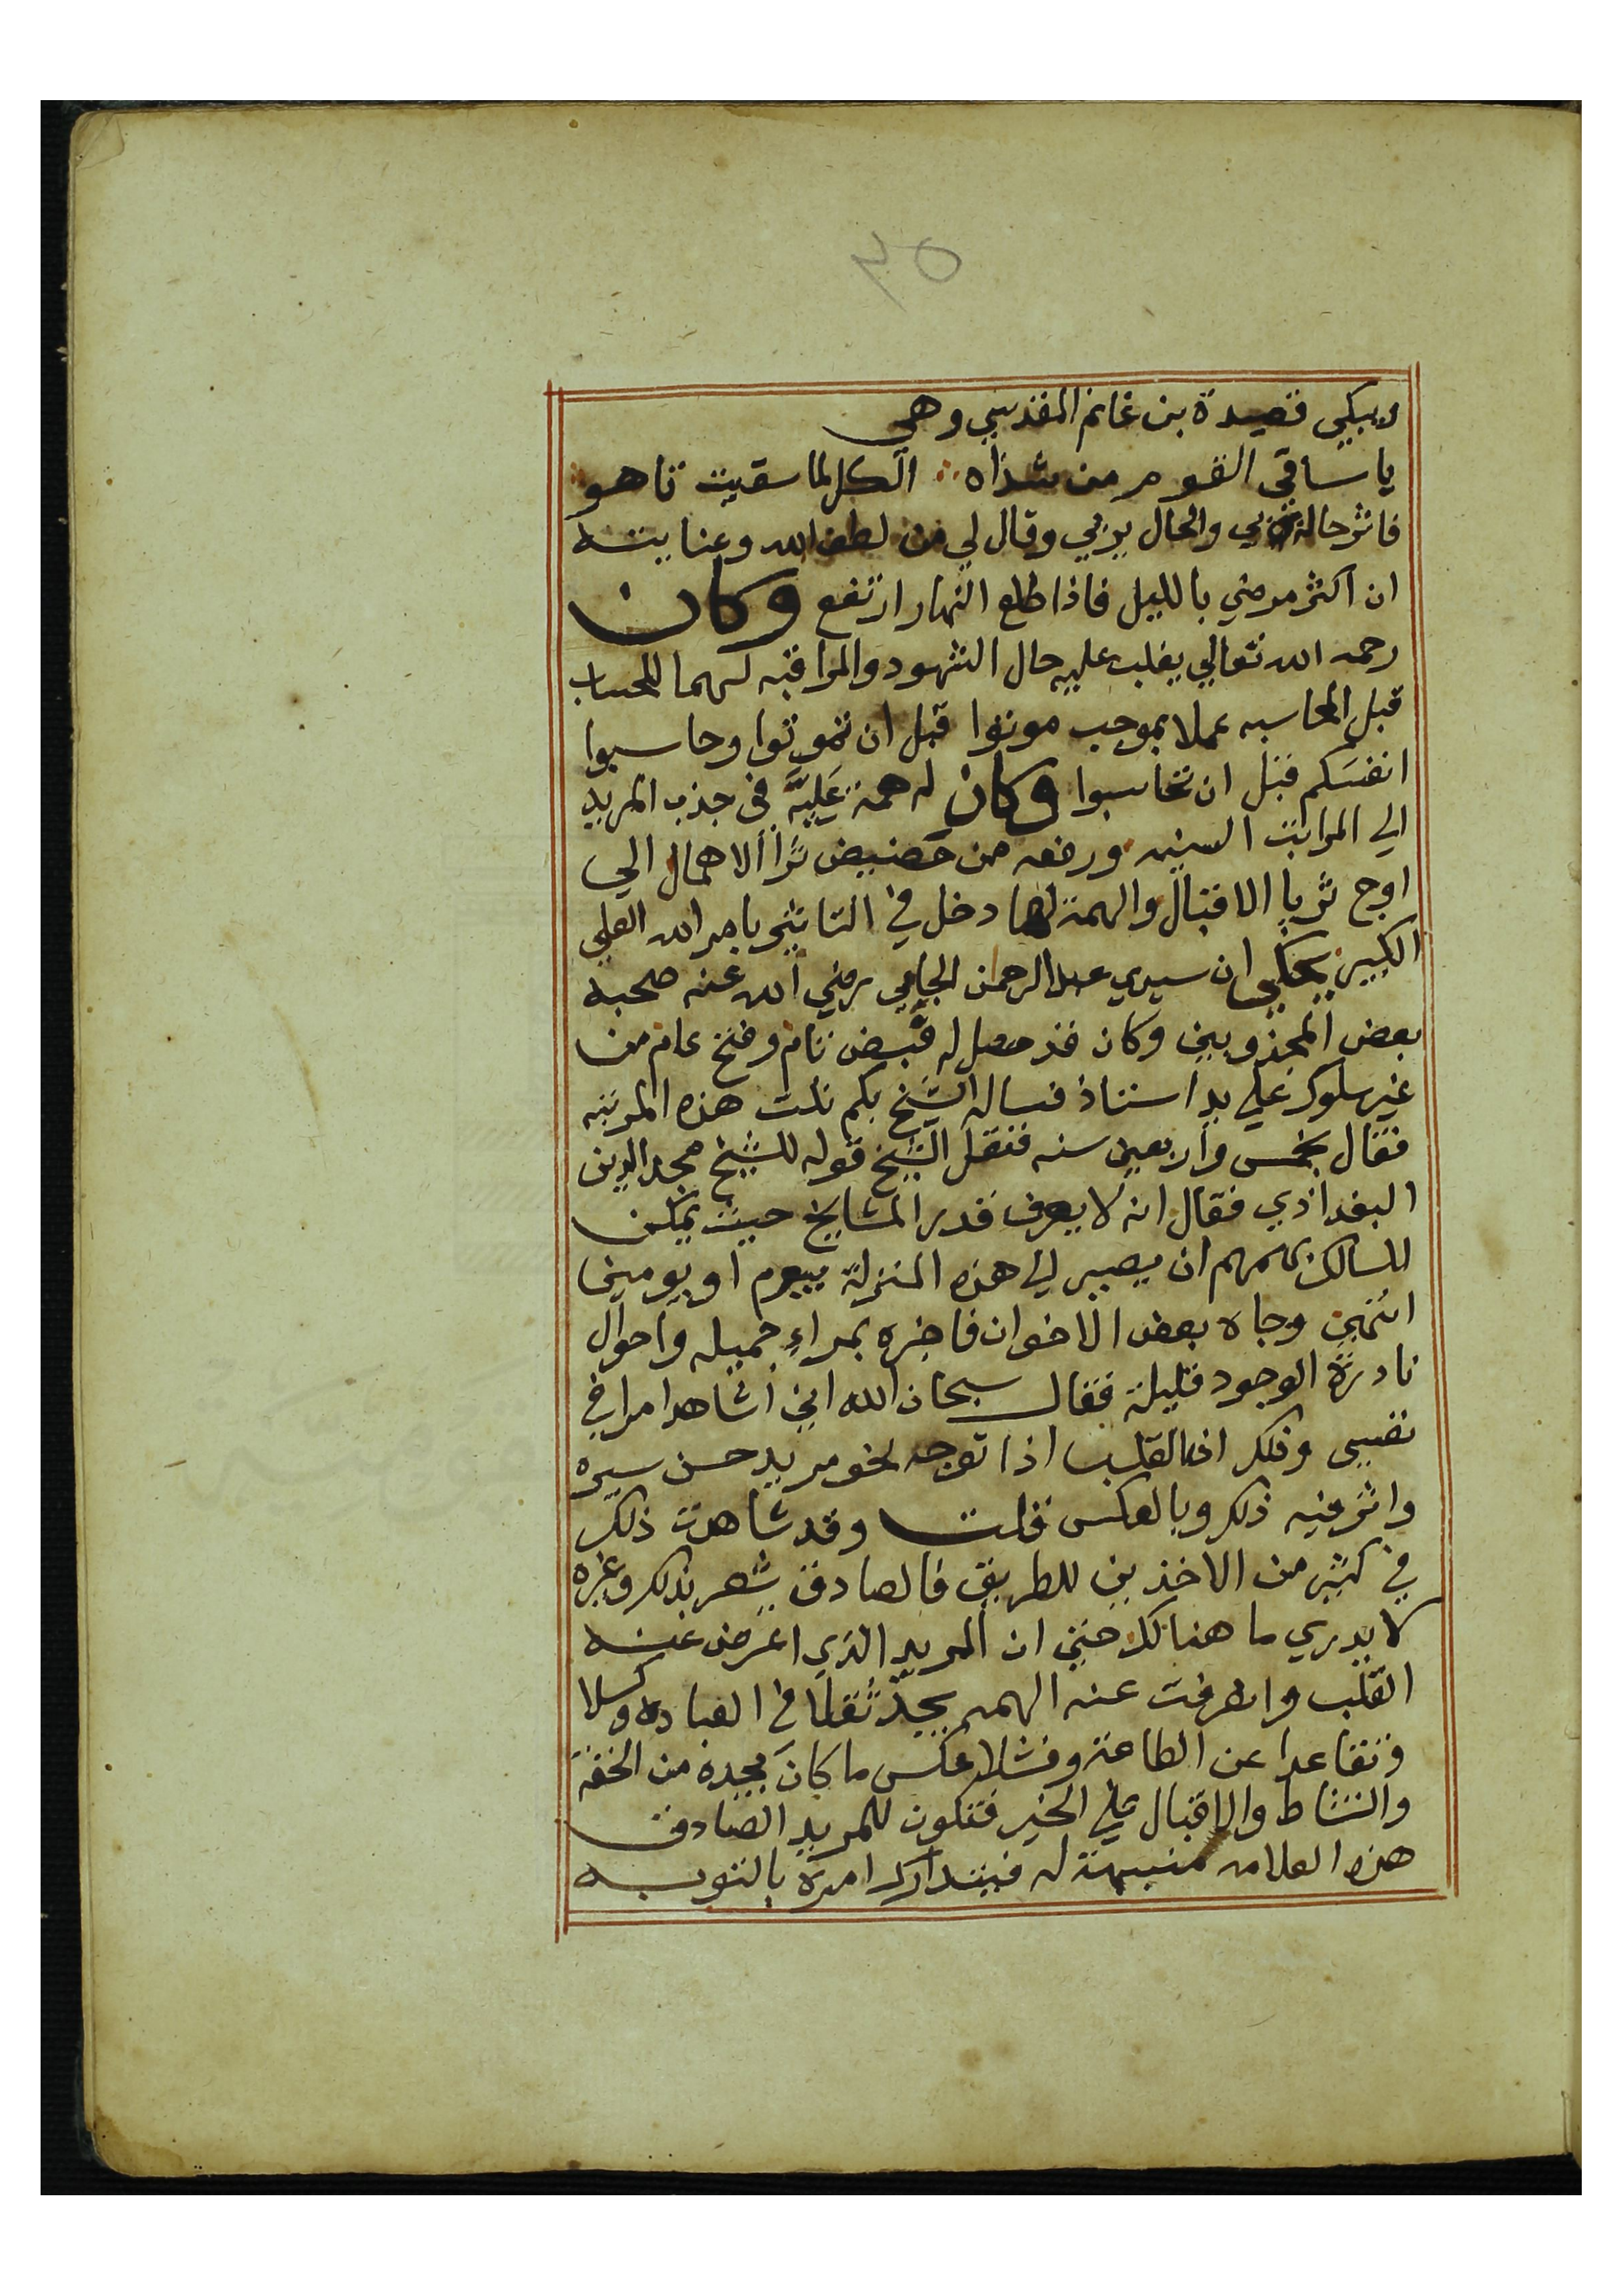 ٣٥
ويبكي قصيدة بن غانم المقدسي وهي
يا ساقي القوم من شذاه الكل لما سقيت تاهوا
فاثر حاله بي والحال يربي وقال لي من لطف الله وعنايته
ان اكثر مرضي بالليل فاذا طلع النهار ارتفع وكان
رحمه الله تعالي يغلب عليه حال الشهود والمراقبه لهما للحساب
قبل المحاسبه عملا بموجب موتوا قبل ان تموتوا وحاسبوا
انفسكم قبل ان تحاسبوا وكان له همة عَليَّه في جذب المريد
الي المراتب السنيه ورفعه من حضيض ثرا الاهمال الي
اوج ثريا الاقبال والهمة لها دخل في التاثير بامر الله العلي
الكبير يحكي ان سيدي عبد الرحمن الجامي رضي الله عنه صحبه
بعض المجذوبين وكان قد حصل له قبض تام وفتح عام من
غير سلوك علي يد استاذ فساله الشيخ بكم نلت هذه المرتبه
فقال بخمس واربعين سنه فنقل الشيخ قوله للشيخ مجد الدين
البغداذي فقال انه لا يعرف قدر المشايخ حيث يمكن
للسالك بهممهم ان يصير الي هذه المنزلة بيوم او يومين
انتهي وجاه بعض الاخوان فاخبره بمراءٍ جميله واحوال
نادرة الوجود قليلة فقال سبحان الله اني اشاهد امرا في
نفسي وذلك ان القلب اذا توجه لخو مريد حسن سيره
واثر فيه ذلك وبالعكس قلت وقد شاهدت ذلك
في كثير من الاخذين للطريق فالصادق يشعر بذلك وغيره
لا يدري ما هنالك حتي ان المريد الذي اعرض عنه
القلب وانصرفت عنه الهمه يجد ثقلا في العباده وكسلا
وتقاعدا عن الطاعة وفشلا عكس ما كان يجده من الخفة
والنشاط والاقبال علي الخير فتكون للمريد الصادق
هذه العلامه منبهة له فيتدارك امره بالتوبه